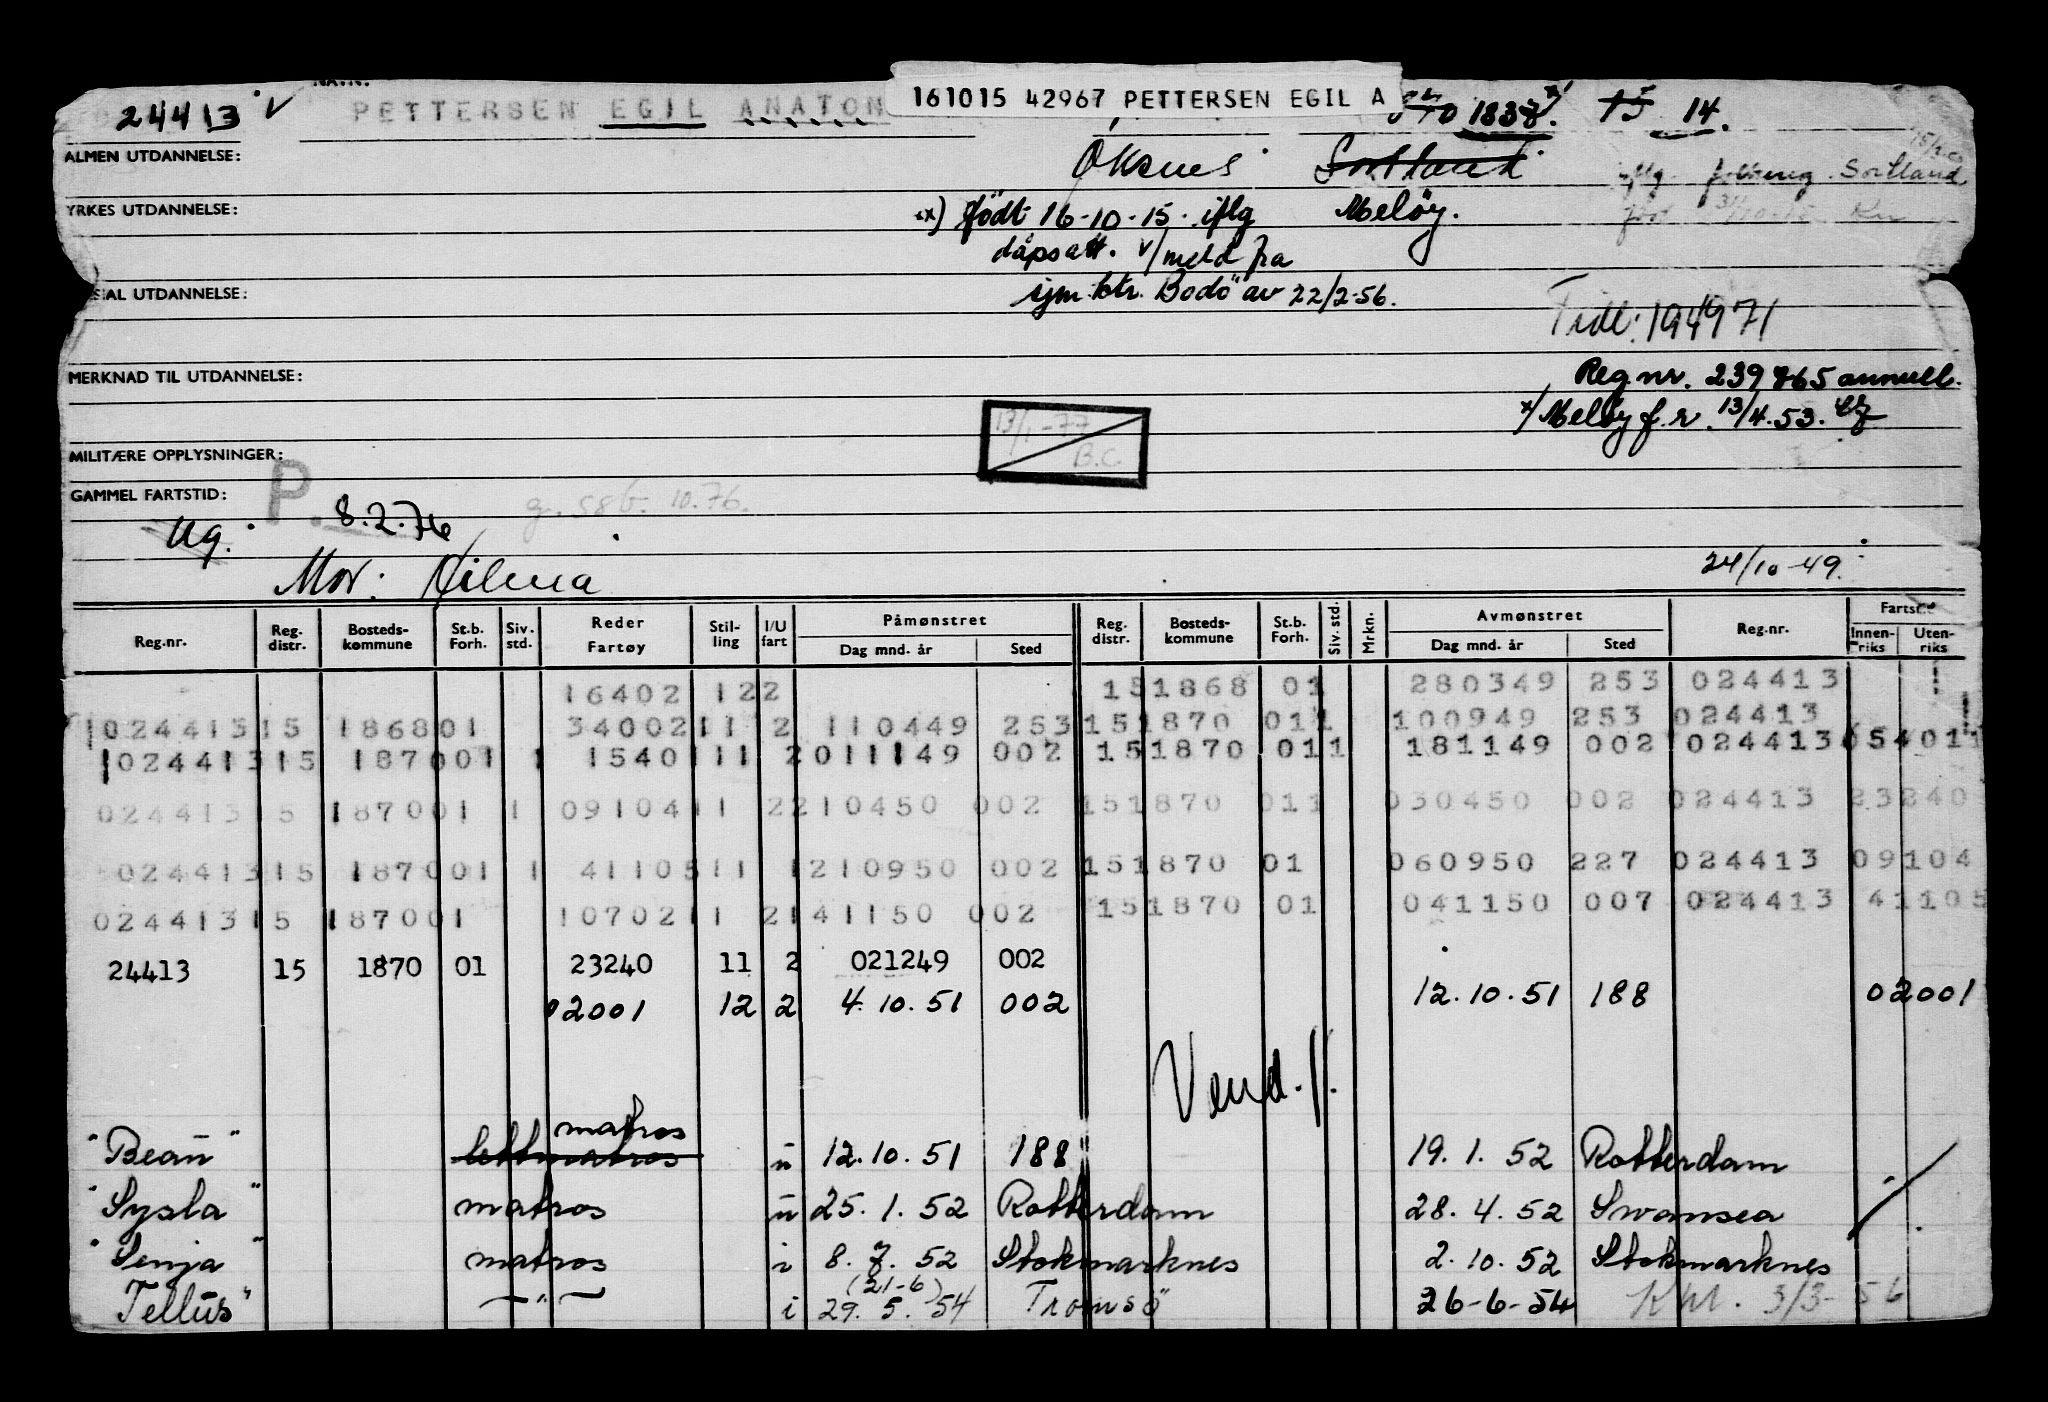 24413 v PETTERSEN EGIL ANATON 161015 42967 PETTERSEN EGIL A 1837. 15 14.
ALMEN UTDANNELSE:
Öksnes Sortland iflg. Sortland
YRKES UTDANNELSE:
x) født 16-10-15. iflg Meløy.
dåpsatt. v/meld fra
sjm.ktr. Bodö av 22/2-56.
SIAL UTDANNELSE:
Tidl: 194971
MERKNAD TIL UTDANNELSE:
Reg nr. 239865 annull.
x/ Meløy f.r. 13/4.53.
13/1-77
B.C.
MILITÆRE OPPLYSNINGER:
GAMMEL FARTSTID:
P. 8.2.76 10.76.
Ug.
Mor: Vilma 24/10-49.
Reg.nr. Reg. distr. Bosteds- kommune St.b. Forh. Siv. std. Reder Fartøy Stil- ling I/U fart Påmønstret Dag mnd. år Sted Reg. distr. Bosteds- kommune St.b. Forh. Siv. std. Mrkn. Avmønstret Dag mnd. år Sted Reg.nr. Innen- riks Uten- riks
16402 122 151868 01 280349 253 024413
024413 15 1868 01 34002 11 2 110449 253 151870 01 1 100949 253 024413
024413 15 1870 01 1 15401 11 2 011149 002 151870 01 1 181149 002 024413 054011
024413 15 1870 01 1 09104 11 2 210450 002 151870 01 1 030450 002 024413 23240
024413 15 1870 01 1 41105 11 1 210950 002 151870 01 060950 227 024413 09104
024413 15 1870 01 10702 11 2 141150 002 151870 01 041150 007 024413 41105
24413 15 1870 01 23240 11 2 021249 002
02001 12 2 4.10.51 002 12.10.51 188 02001
Vend.//.
matros
"Beau" lettmatros u 12.10.51 188 19.1.52 Rotterdam
"Sysla" matros u 25.1.52 Rotterdam 28.4.52 Swansea
"Senja" matros i 8.7.52 Stokmarknes 2.10.52 Stokmarknes
(21-6)
Tellus" —"— i 29.5.54 Tromsö 26-6-54 3/3-56